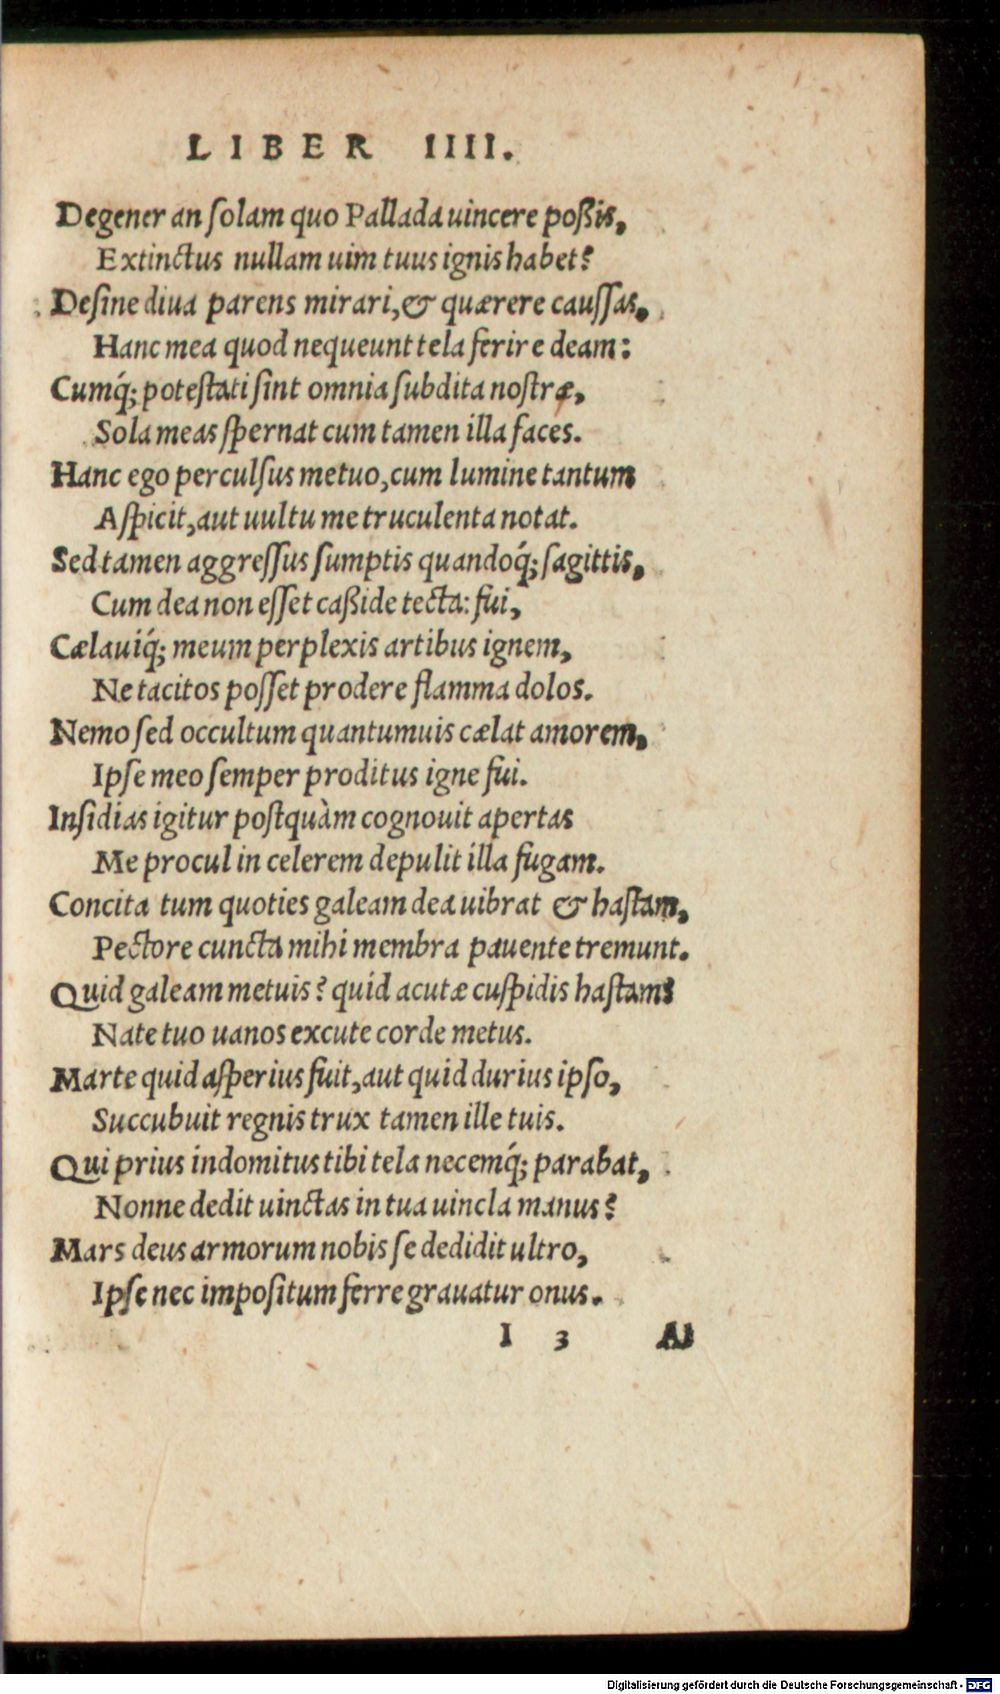 LIBER IIII.
Degener an ſolam quo Pallada uincere poßis,
Extinctus nullam uim tuus ignis habet?
Deſine diua parens mirari, & quærere cauſſas,
Hanc mea quod nequeunt tela ferire deam:
Cumq́; poteſtati ſint omnia ſubdita noſtræ,
Sola meas ſpernat cum tamen illa faces.
Hanc ego perculſus metuo, cum lumine tantum
Aſpicit, aut uultu me truculenta notat.
Sed tamen aggreſſus ſumptis quandoq́; ſagittis,
Cum dea non eſſet caßide tecta: fui,
Cælauiq́; meum perplexis artibus ignem,
Ne tacitos poſſet prodere flamma dolos.
Nemo ſed occultum quantumuis cælat amorem,
Ipſe meo ſemper proditus igne fui.
Inſidias igitur poſtquàm cognouit apertas
Me procul in celerem depulit illa fugam.
Concita tum quoties galeam dea uibrat & haſtam,
Pectore cuncta mihi membra pauente tremunt.
Quid galeam metuis? quid acutæ cuſpidis haſtam?
Nate tuo uanos excute corde metus.
Marte quid aſperius fuit, aut quid durius ipſo,
Succubuit regnis trux tamen ille tuis.
Qui prius indomitus tibi tela necemq́; parabat,
Nonne dedit uinctas in tua uincla manus?
Mars deus armorum nobis ſe dedidit ultro,
Ipſe nec impoſitum ferre grauatur onus.
I 3 At
Digitalisierung gefördert durch die Deutsche Forschungsgemeinschaft - DFG